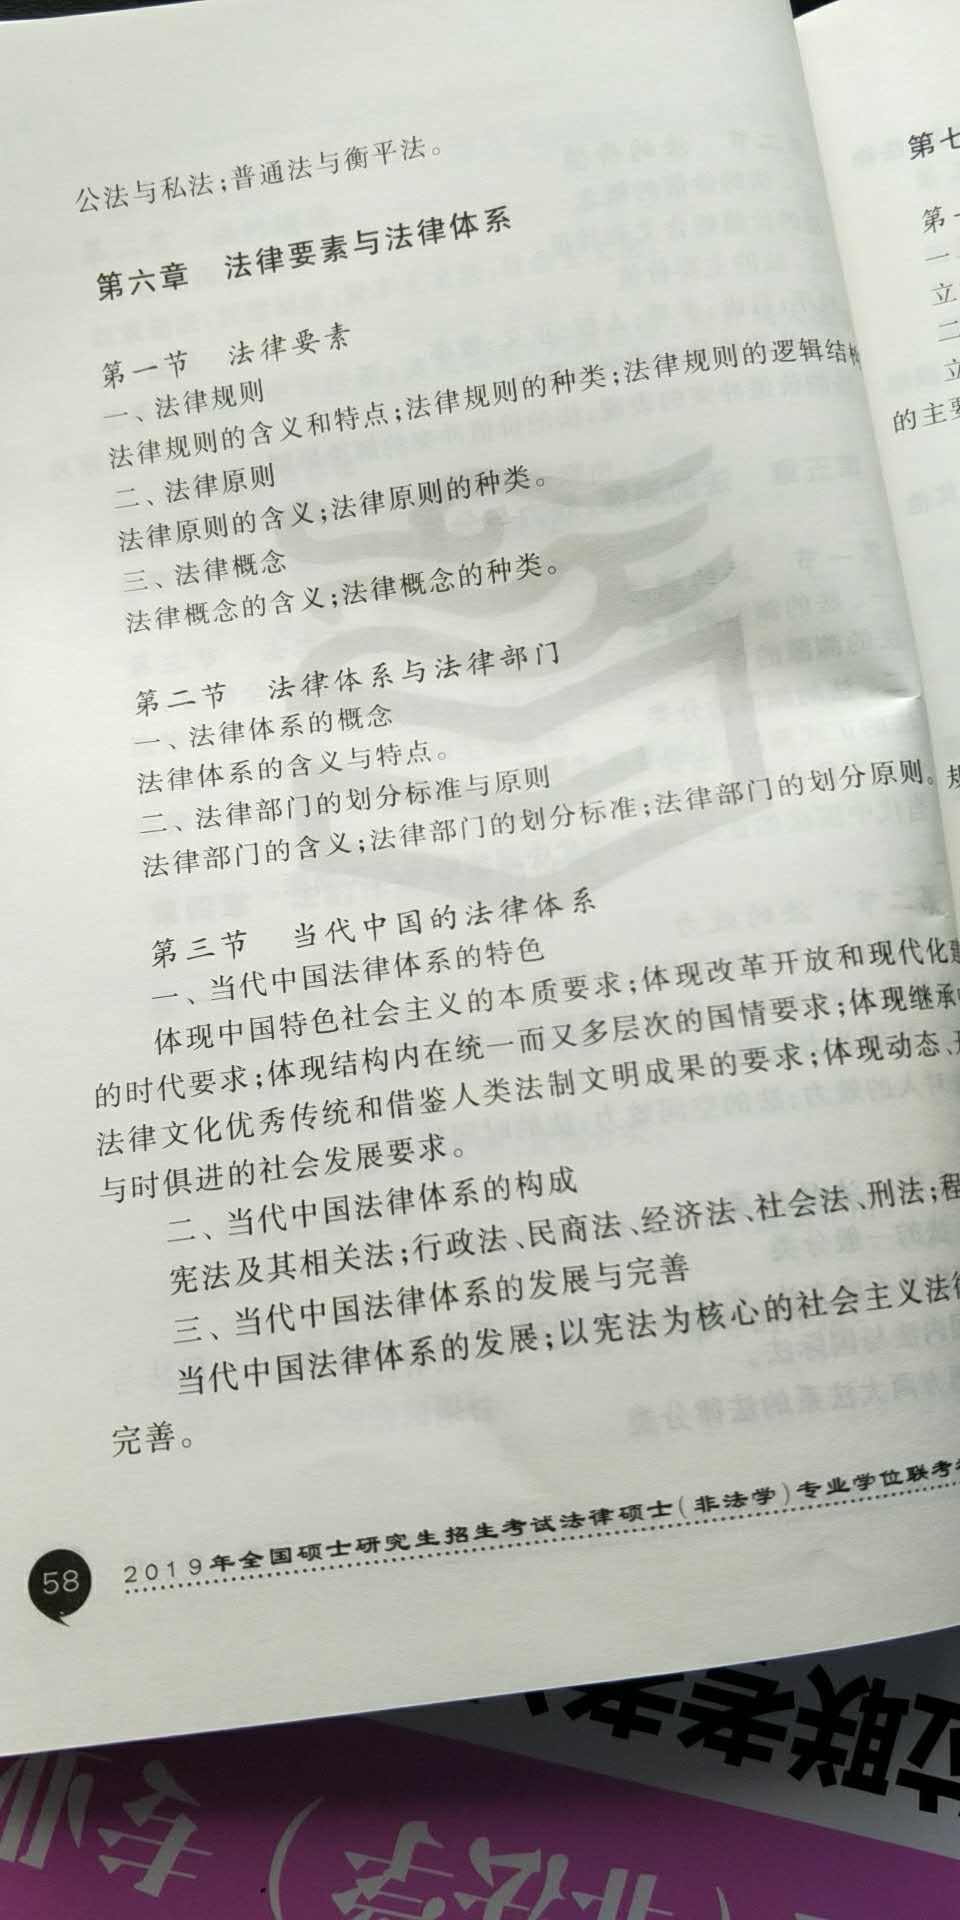 公法与私法;普通法与衡平法。
第六章 法律要素与法律体系
第一节 法律要素
一、法律规则
法律规则的含义和特点;法律规则的种类;法律规则的逻辑结构
二、法律原则
法律原则的含义;法律原则的种类。
三、法律概念
法律概念的含义;法律概念的种类。
第二节 法律体系与法律部门
一、法律体系的概念
法律体系的含义与特点。
二、法律部门的划分标准与原则
法律部门的含义;法律部门的划分标准;法律部门的划分原则。
第三节 当代中国的法律体系
一、当代中国法律体系的特色
体现中国特色社会主义的本质要求;体现改革开放和现代化建
的时代要求;体现结构内在统一而又多层次的国情要求;体现继承
法律文化优秀传统和借鉴人类法制文明成果的要求;体现动态、
与时俱进的社会发展要求。
二、当代中国法律体系的构成
宪法及其相关法;行政法、民商法、经济法、社会法、刑法;程
三、当代中国法律体系的发展与完善
当代中国法律体系的发展;以宪法为核心的社会主义法律
完善。
58
2019年全国硕士研究生招生考试法律硕士(非法学)专业学位联考
第七
第一
一
立
二
立
的主要
规
位联考考
(非法学)专业